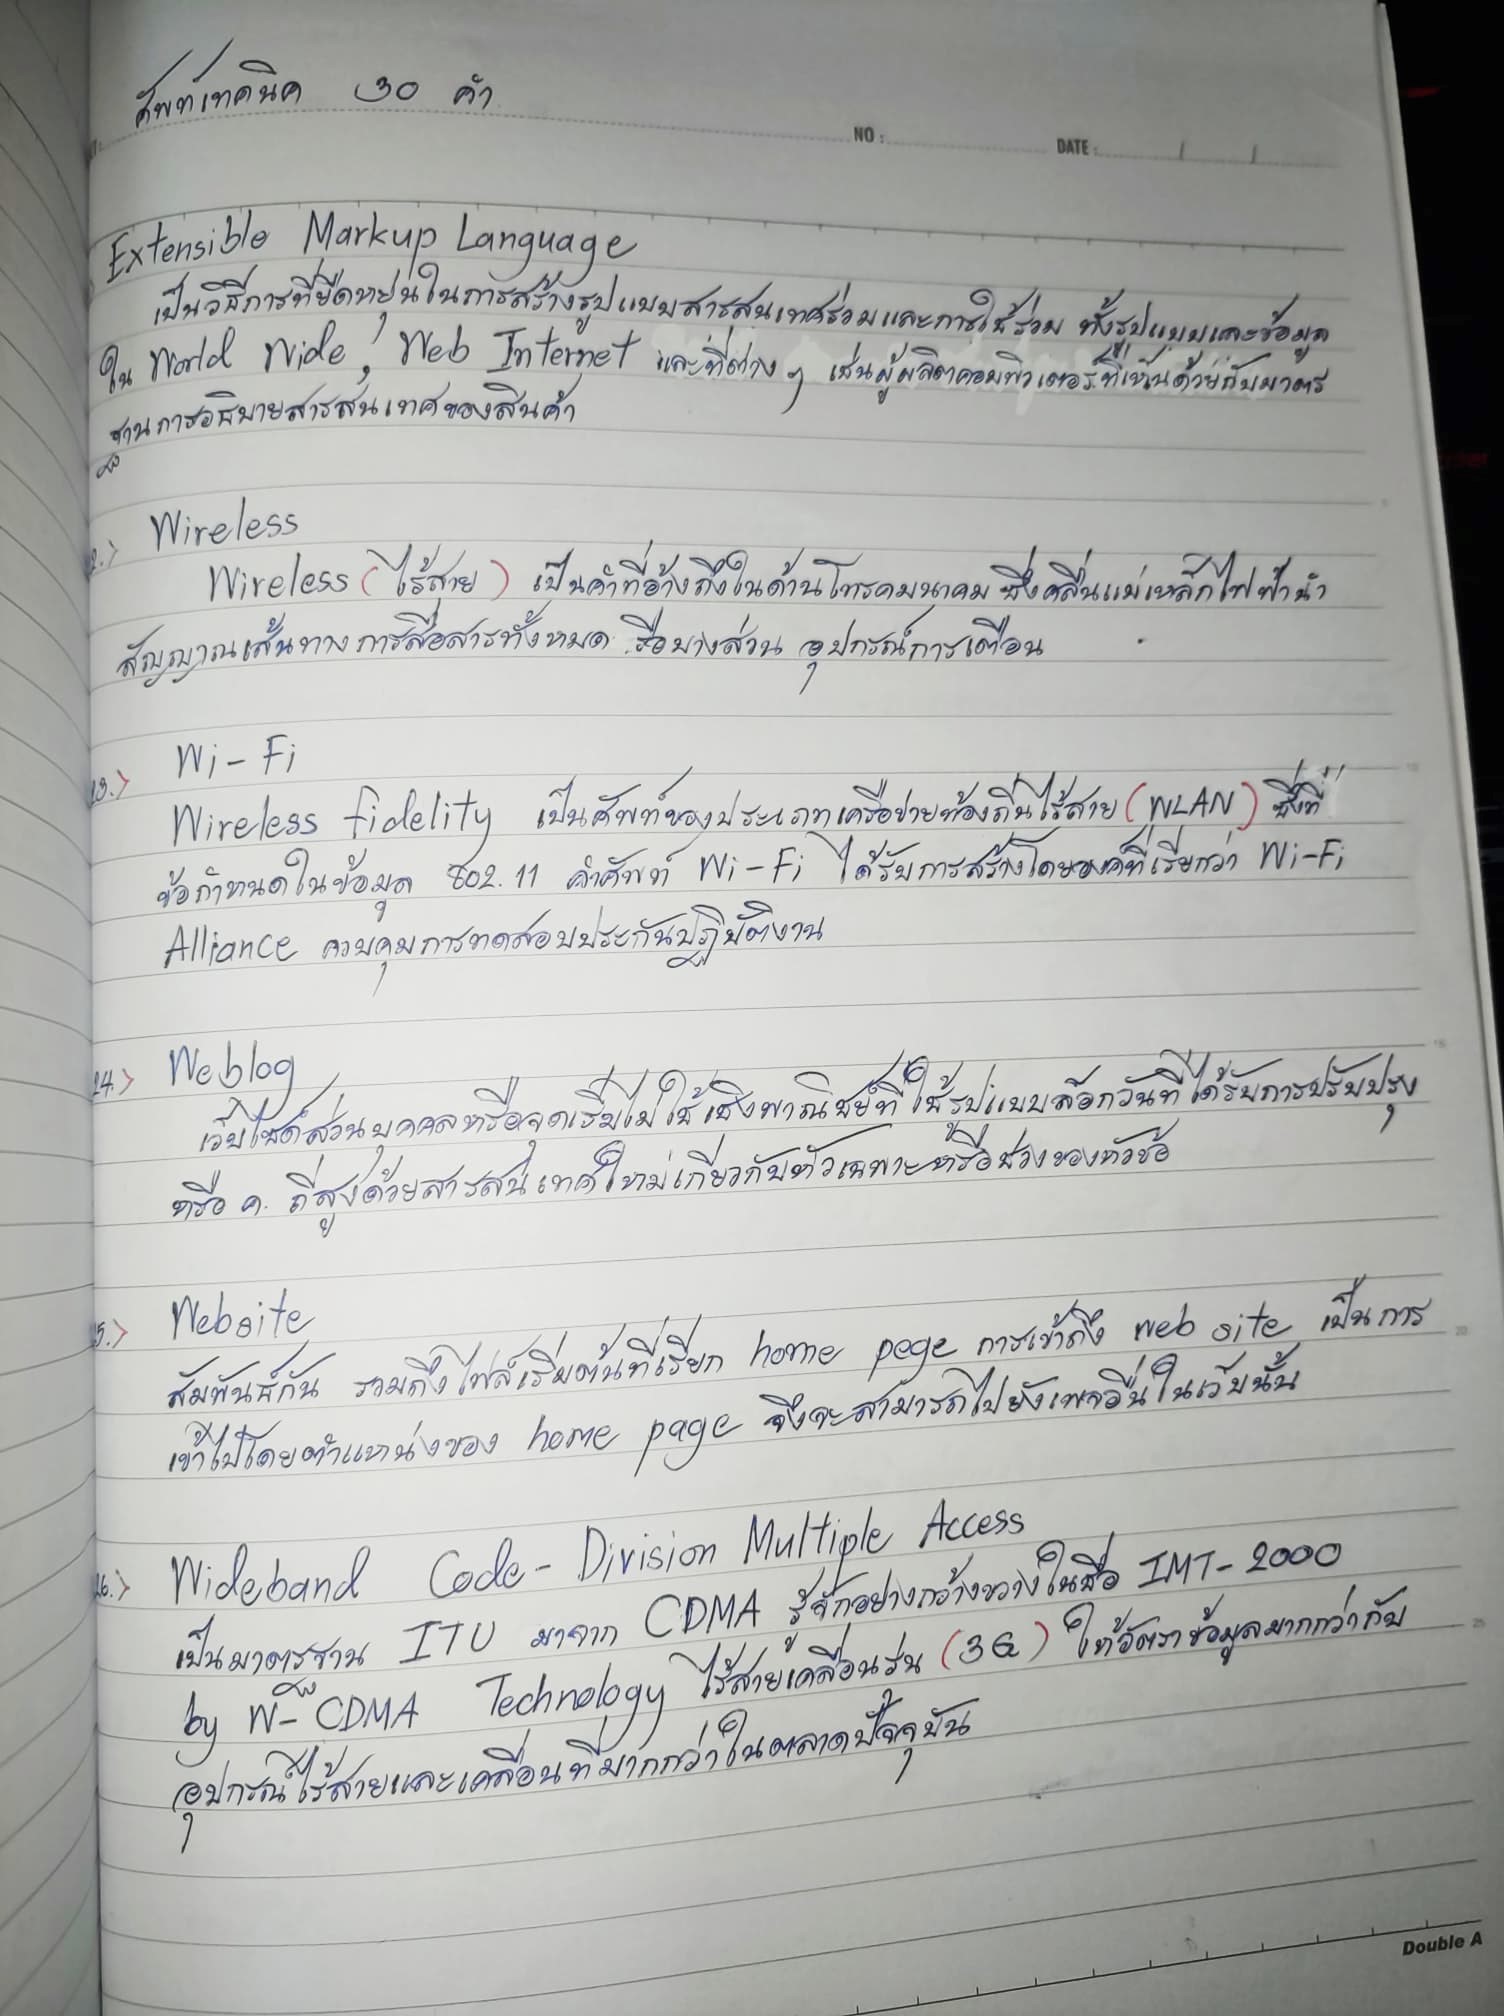 ศัพท์เทคนิค 30 คำ
NO :
DATE :
Extensible Markup Language
เป็นวิธีการที่ยืดหยุ่นในการสร้างรูปแบบสารสนเทศร่วมและการใช้ร่วม ทั้งรูปแบบและข้อมูล
ใน World Wide , Web Internet และที่ต่าง ๆ เช่นผู้ผลิตคอมพิวเตอร์ที่เห็นด้วยกับมาตร
ฐานการอธิบายสารสนเทศของสินค้า
2.) Wireless
Wireless ( ไร้สาย ) เป็นคำที่อ้างถึงในด้านโทรคมนาคม ซึ่งคลื่นแม่เหล็กไฟฟ้านำ
สัญญาณเส้นทางการสื่อสารทั้งหมด รือบางส่วน อุปกรณ์การเตือน
23.) Wi-Fi
Wireless fidelity เป็นศัพท์ของประเภทเครือข่ายท้องถิ่นไร้สาย ( WLAN ) ซึ่งที่
ข้อกำหนดในข้อมูล 802.11 คำศัพท์ Wi-Fi ได้รับการสร้างโดยองค์ที่เรียกว่า Wi-Fi
Alliance ควบคุมการทดสอบประกันปฏิบัติงาน
24.) Weblog
เว็บไซต์ส่วนบุคคลหรือจุดเริ่มไม่ใช้เชิงพาณิชย์ที่ใช้รูปแบบล๊อกวันที่ได้รับการปรับปรุง
หรือ ค. ถี่สูงด้วยสารสนเทศใหม่เกี่ยวกับหัวเฉพาะหรือช่วงของหัวข้อ
5.) Website
สัมพันธ์กัน รวมถึงไฟล์เริ่มต้นที่เรียก home page การเข้าถึง web site เป็นการ
เข้าไปโดยตำแหน่งของ home page จึงจะสามารถไปยังเพจอื่นในเว็บนั้น
26.) Wideband Code-Division Multiple Access
เป็นมาตรฐาน ITU มาจาก CDMA รู้จักอย่างกว้างขวางในชื่อ IMT-2000
by W-CDMA Technology ไร้สายเคลื่อนรุ่น ( 3G ) ให้อัตราข้อมูลมากกว่ากับ
อุปกรณ์ไร้สายและเคลื่อนที่มากกว่าในตลาดปัจจุบัน
Double A